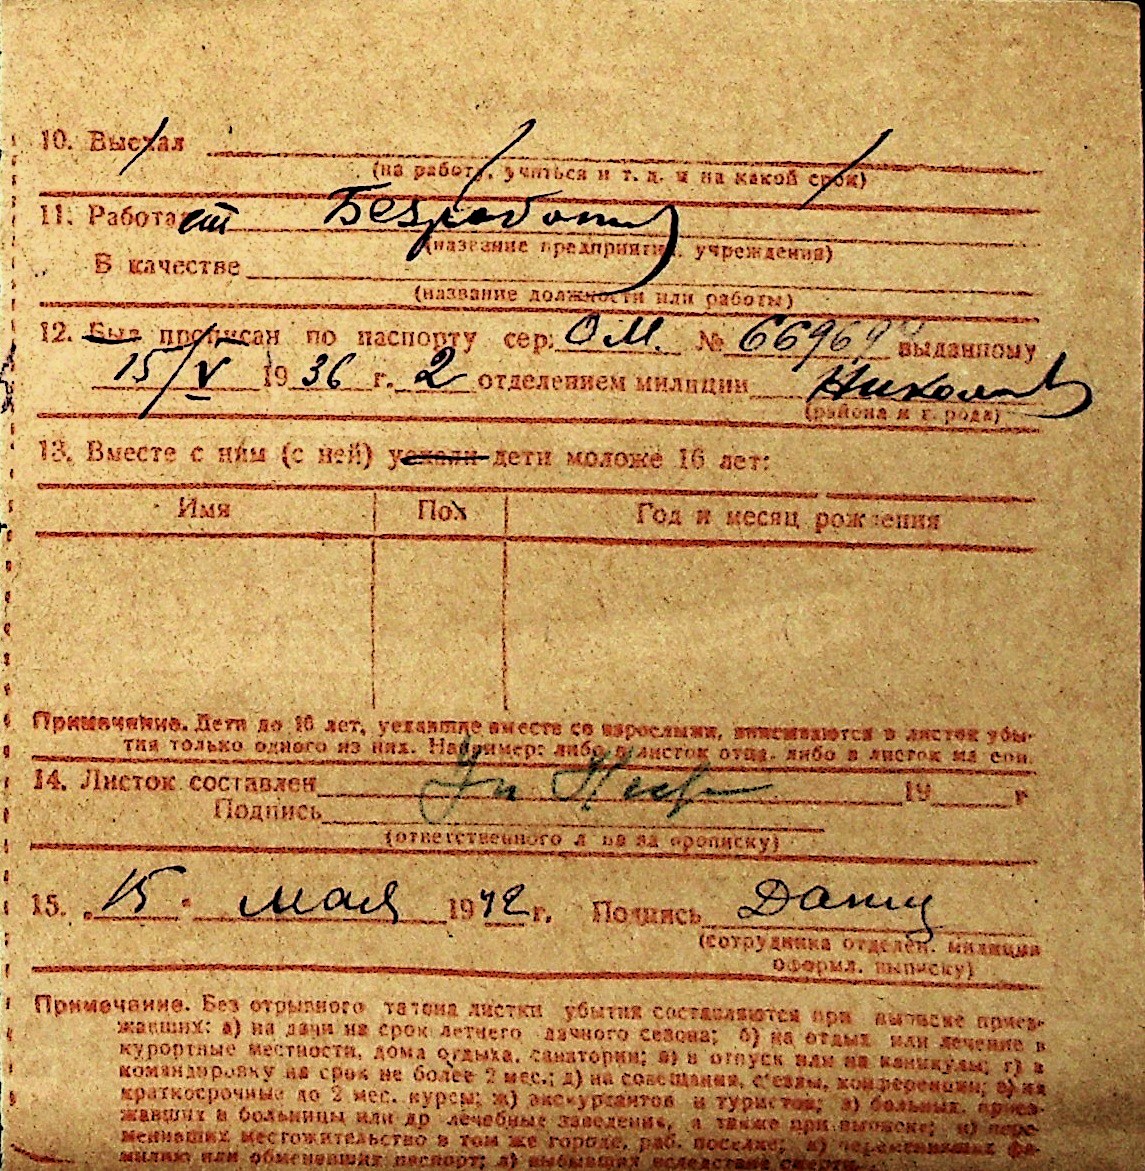 10. Выехал
(на работу, учиться и т. д. и на какой срок)
11. Работает Безработный
(название предприятия, учреждения)
В качестве
(название должности или работы)
12. Был прописан по паспорту сер. ОМ. № выданному
15/V 1936 г. 2 отделением милиции
(района и города)
13. Вместе с ним (с ней) уехали дети моложе 16 лет:
Имя Пол Год и месяц рождения
Примечание. Дети до 16 лет, уехавшие вместе со взрослыми, вписываются в листок убы-
тия только одного из них. Например: либо в листок отца, либо в листок матери.
14. Листок составлен 19 г
Подпись
(ответственного лица за прописку)
15. „15" мая 1942 г. Подпись
(сотрудника отделен. милиции
оформл. выписку)
Примечание. Без отрывного талона листки убытия составляются при выписке приез-
жавших: а) на дачи на срок летнего дачного сезона; б) на отдых или лечение в
курортные местности, дома отдыха, санатории; в) в отпуск или на каникулы; г) в
командировку на срок не более 2 мес.; д) на совещания, съезды, конференции; е) на
краткосрочные до 2 мес. курсы; ж) экскурсантов и туристов; з) больных, приез-
жавших в больницы или др лечебные заведения, а также при выписке; и) пере-
менивших местожительство в том же городе, раб. поселке; к) переменивших фа-
милию или обменявших паспорт; л) выбывших вследствие смерти.